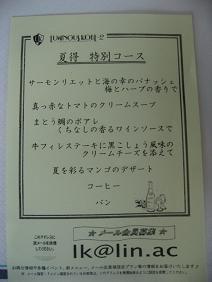 LUMINOUS KOBE-2
夏得 特別コース
サーモンリエットと海の幸のパナッシェ
梅とハーブの香りで
真っ赤なトマトのクリームスープ
まとう鯛のポアレ
くちなしの香るワインソースで
牛フィレステーキに黒こしょう風味の
クリームチーズを添えて
夏を彩るマンゴのデザート
コーヒー
パン
★ メール会員募集 ★
lk@lin.ac